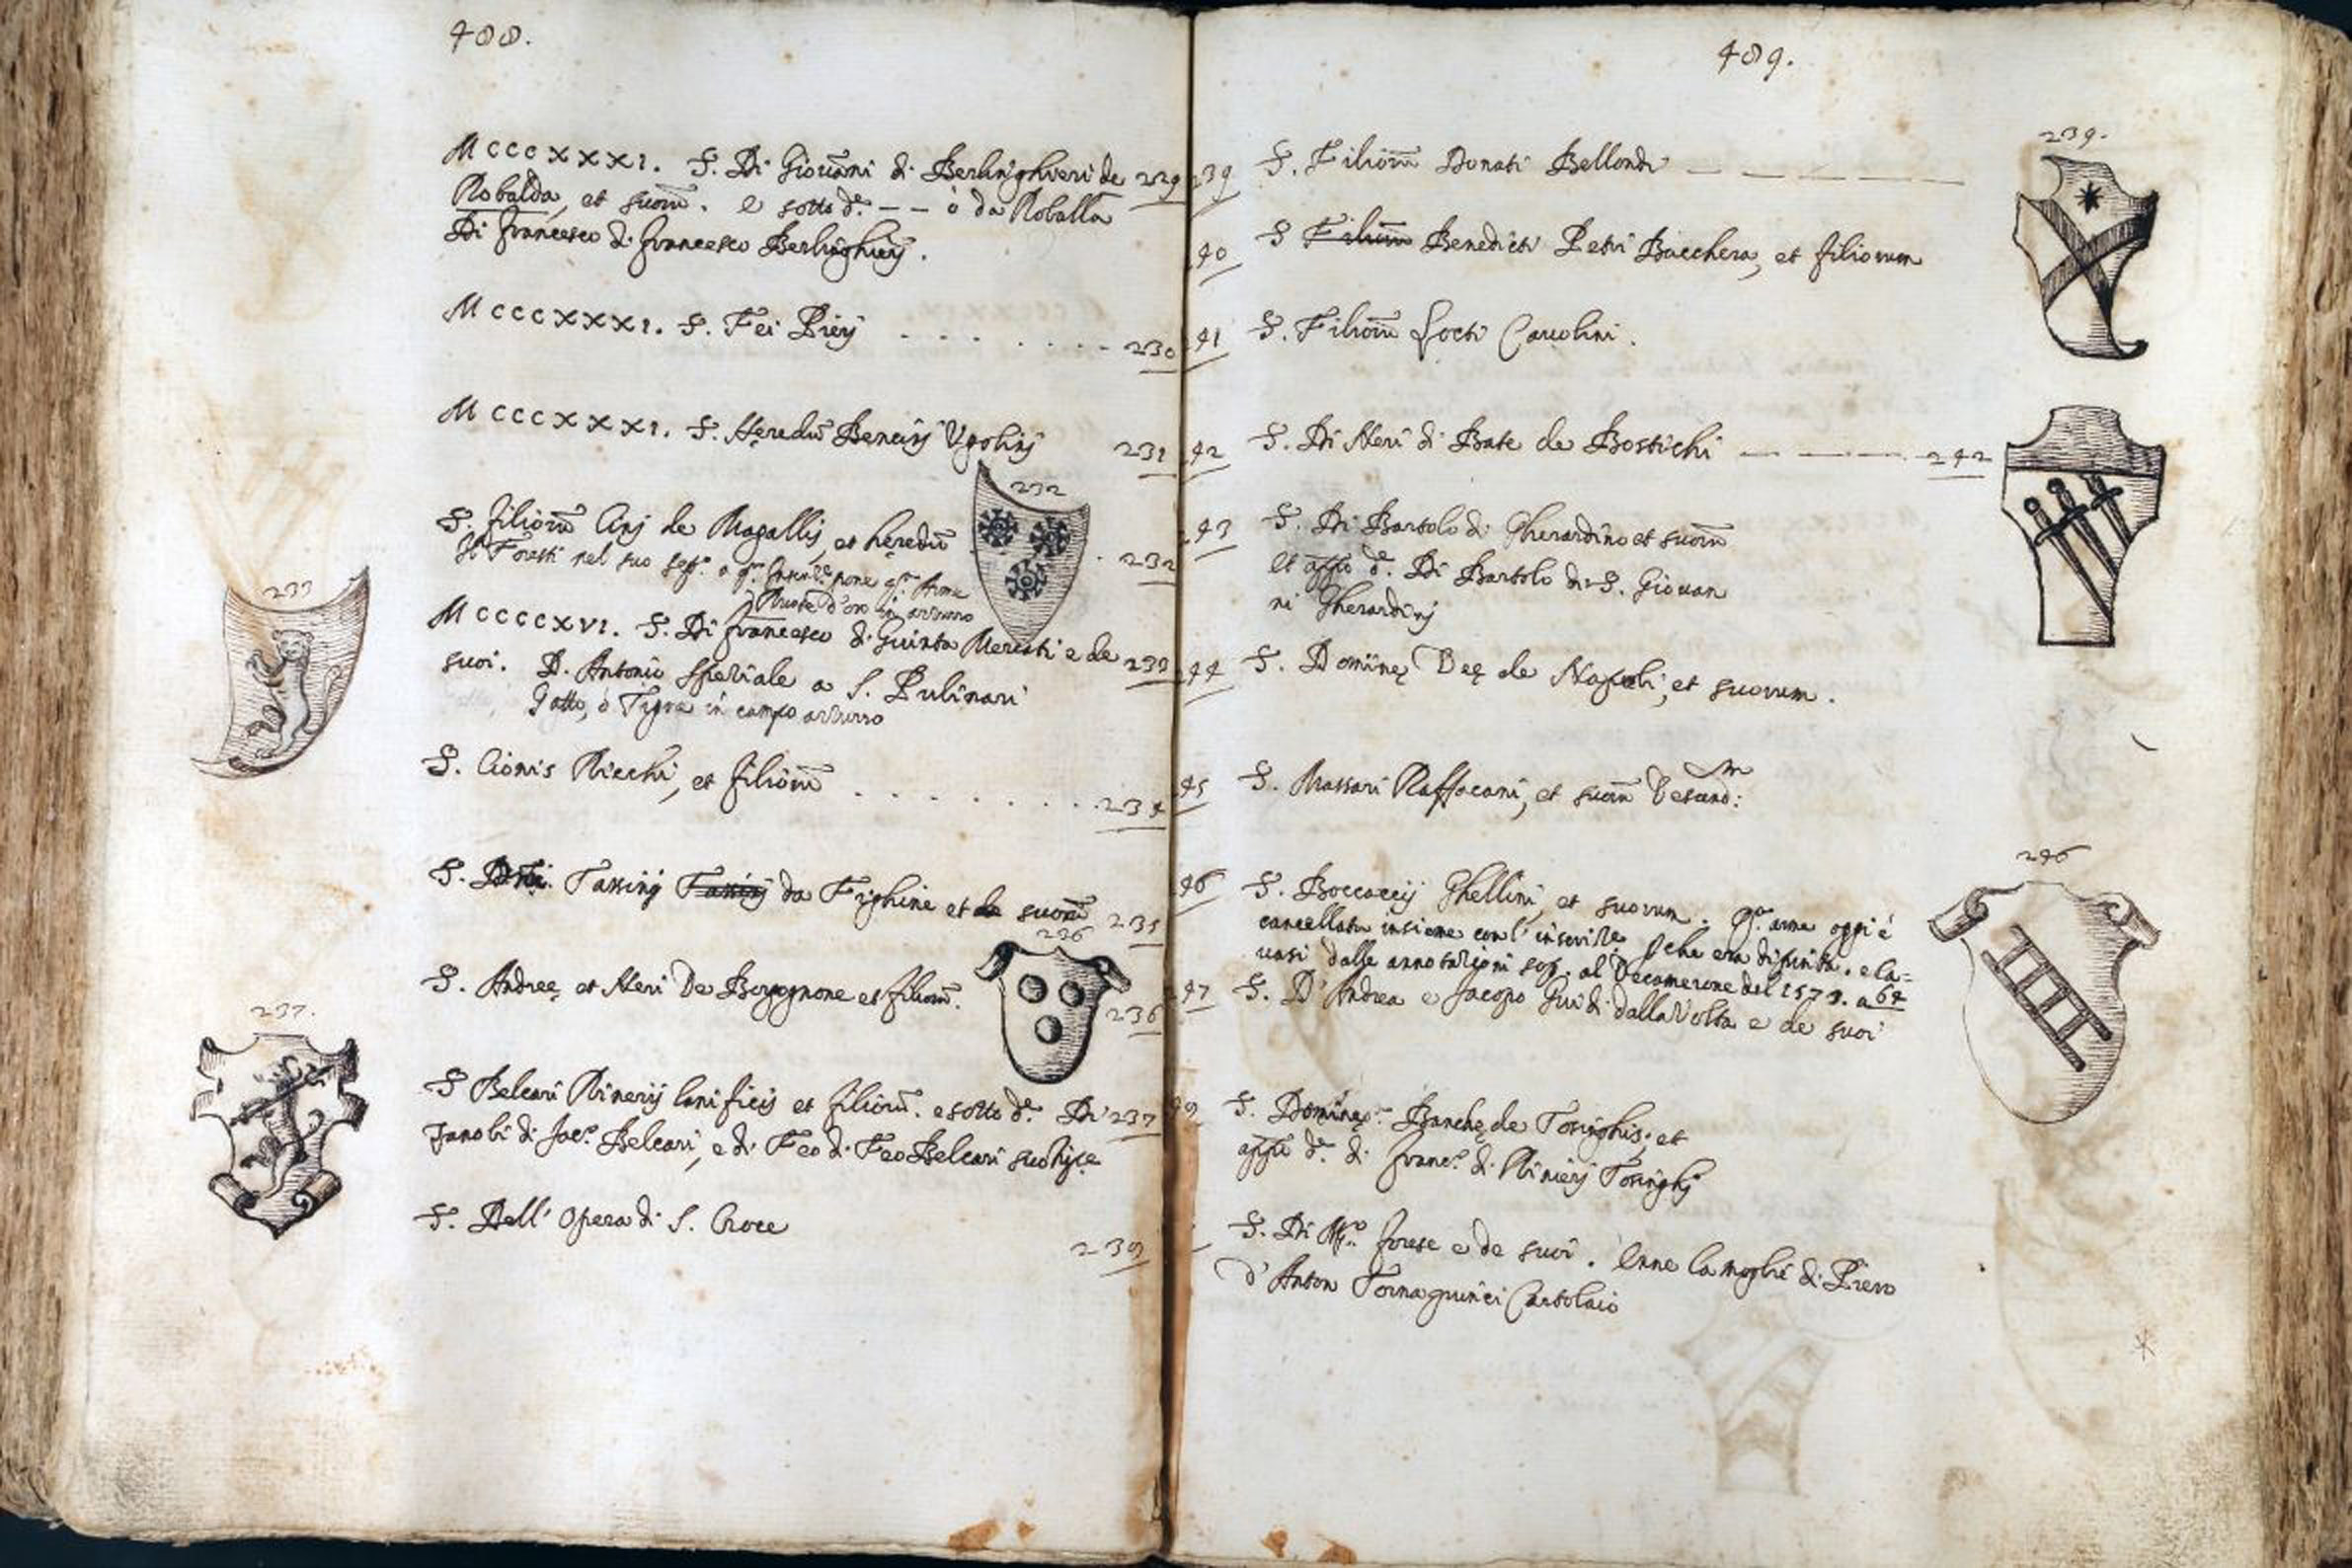 488.
MCCCXXXI. S. Di Giovāni di Berlinghieri de 229
Robalda, et suorū. e sotto d.º — — ò da Roballa
Di Francesco di Francesco Berlinghierij.
MCCCXXXI. S. Fei Pierj . . . . . . 230
MCCCXXXI. S. Heredū Bencinj Ugolinj 231
232
S. Filiorū Cinj de Magallis, et heredū . 232
Il Foresti nel suo pone q.ª Arme
Ruote d'oro in azzurro
233
MCCCCXVI. S. Di Francesco di Giunta Mercati e de 233
suoi. D. Antonio speziale a S. Pulinari
Gatto, ò Tigre in campo azzurro
S. Cionis Ricchi, et filiorū . . . . . . . . 234
S. Tassinj Tassinj da Fighine et de suorū 235
236
S. Andreę et Neri De Borgognone et filiorū. 236
237.
S Belcari Rinerij lanificis et filiorū. e sotto d.º Di 237
Zanobi di Jac.º Belcari, e di Feo di Feo Belcari
S. Dell' Opera di S. Croce
238
489.
239.
239 S. Filiorū Donati Bellondi — — — —
40 S Filiorū Benedicti Petri Bucchera, et filiorum
41 S. Filiorū Locti Carolini.
42 S. Di Neri di Bate de Bostichi — — — 242
43 S. Di Bartolo di Gherardino et suorū
et app.º d.º Di Bartolo di S. Giovan
ni Gherardinj
44 S. Domīnę Deę de Napoli, et suorum.
45 S. Massari Raffacani, et suorū
246
46 S. Boccaccij Ghellini, et suorum. Q.ª arme oggi è
cancellata insieme con l' inscriz.e che era dipinta. e la-
vasi dalle annotazioni sop.ª al Decamerone del 1573. a 64
47 S. D'Andrea e Jacopo Guidi dalla Volta e de suoi
48 S. Domīnę Banchę de Tosinghis, et
app.º d.º di Franc.º di Rinierj Tosinghj
S. Di M.º Forese e de suoi. Enne la moglie di Piero
d'Anton Tornaquinci Cartolaio